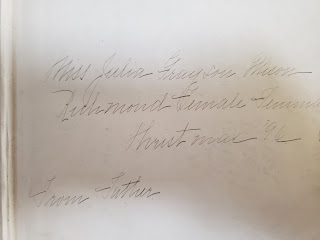 Miss Julia Grayson
Richmond Female
Christmas '96
From Father